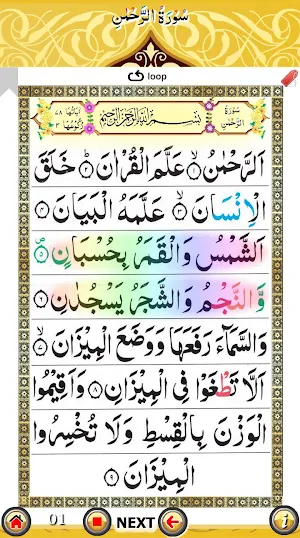 سُوْرَةُ الرَّحْمٰنِ
loop
سُوْرَةُ الرَّحْمٰنِ
بِسْمِ اللّٰهِ الرَّحْمٰنِ الرَّحِيْمِ
اٰیَاتُهَا ٧٨
رُكُوْعُهَا ٣
اَلرَّحْمٰنُ ۙ﴿۱﴾ عَلَّمَ الْقُرْاٰنَ ؕ﴿۲﴾ خَلَقَ
الْاِنْسَانَ ۙ﴿۳﴾ عَلَّمَهُ الْبَیَانَ ﴿۴﴾
اَلشَّمْسُ وَالْقَمَرُ بِحُسْبَانٍ ﴿۵﴾
وَّالنَّجْمُ وَالشَّجَرُ یَسْجُدٰنِ ﴿۶﴾
وَالسَّمَآءَ رَفَعَهَا وَوَضَعَ الْمِیْزَانَ ۙ﴿۷﴾
اَلَّا تَطْغَوْا فِی الْمِیْزَانِ ﴿۸﴾ وَاَقِیْمُوا
الْوَزْنَ بِالْقِسْطِ وَلَا تُخْسِرُوا
الْمِیْزَانَ ﴿۹﴾
01 NEXT